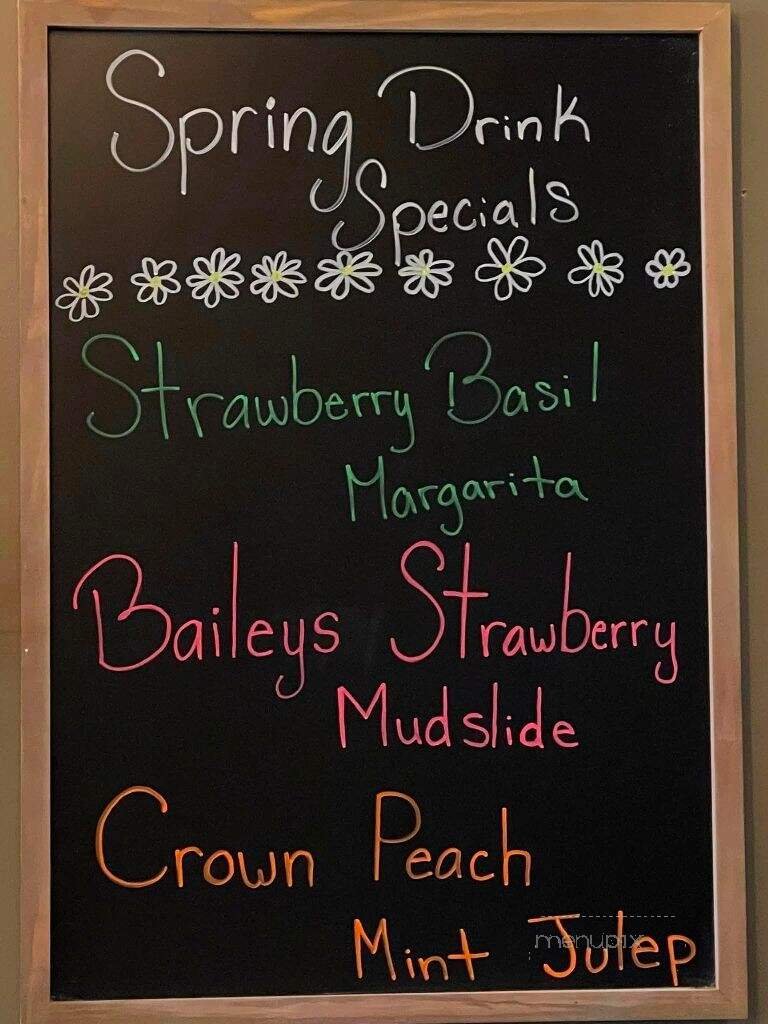 Spring Drink
Specials
Strawberry Basil
Margarita
Baileys Strawberry
Mudslide
Crown Peach
Mint Julep
menupix